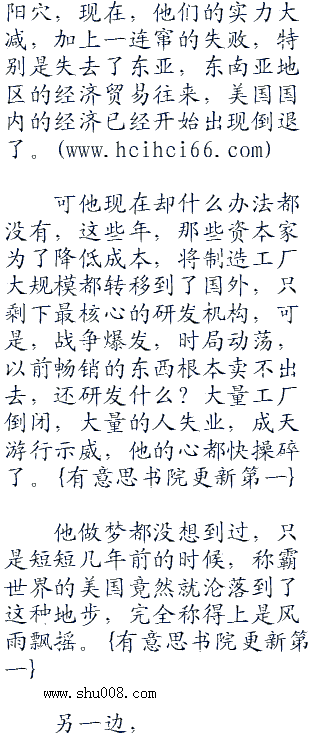 阳穴，现在，他们的实力大
减，加上一连窜的失败，特
别是失去了东亚，东南亚地
区的经济贸易往来，美国国
内的经济已经开始出现倒退
了。(www.hcihci66.com)
可他现在却什么办法都
没有，这些年，那些资本家
为了降低成本，将制造工厂
大规模都转移到了国外，只
剩下最核心的研发机构，可
是，战争爆发，时局动荡，
以前畅销的东西根本卖不出
去，还研发什么？大量工厂
倒闭，大量的人失业，成天
游行示威，他的心都快操碎
了。{有意思书院更新第一}
他做梦都没想到过，只
是短短几年前的时候，称霸
世界的美国竟然就沦落到了
这种地步，完全称得上是风
雨飘摇。{有意思书院更新第
一}
www.shu008.com
另一边，